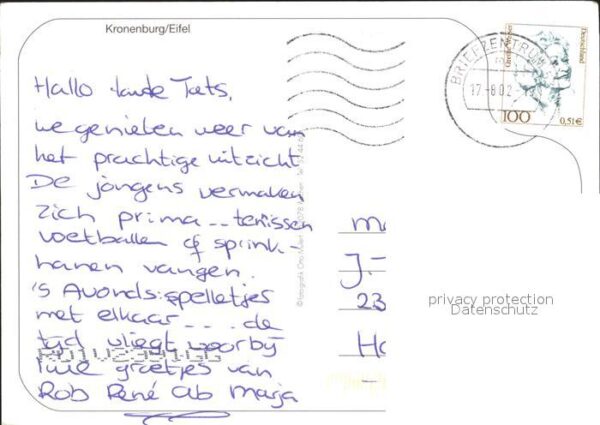 Kronenburg/Eifel
BRIEFZENTRUM
17-8.02
Deutschland
100
0,51 €
Hallo tante Toets,
we genieten weer van
het prachtige uitzicht
De jongens vermaken
zich prima.. tennissen
voetballen of sprink-
hanen vangen.
's Avonds spelletjes
met elkaar.... de
tijd vliegt voorbij
groetjes van
Rob René Ab Marja
J.-
23
Ho
privacy protection
Datenschutz